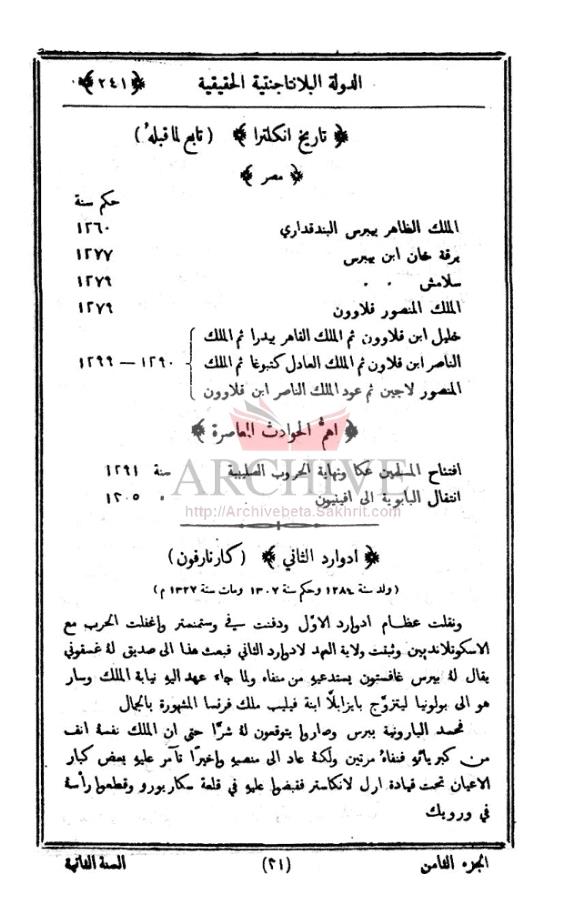 الدولة البلانتاجنتية الحقيقية ﴿٢٤١﴾
﴿ تاريخ انكلترا ﴾ (تابع لما قبلهُ)
﴿ مصر ﴾
حكم سنة
الملك الظاهر بيبرس البندقداري ١٢٦٠
برقة خان ابن بيبرس ١٢٧٧
سلامش " " ١٢٧٩
الملك المنصور قلاوون ١٢٧٩
خليل ابن قلاوون ثم الملك القاهر بيدرا ثم الملك
الناصر ابن قلاون ثم الملك العادل كتبوغا ثم الملك ١٢٩٠ — ١٢٩٩
المنصور لاجين ثم عود الملك الناصر ابن قلاوون
﴿ اهمُّ الحوادث المعاصرة ﴾
افتتاح المسلمين عكا ونهاية الحروب الصليبية سنة ١٢٩١
ARCHIVE
انتقال البابوية الى افينيون " ١٣٠٥
http://Archivebeta.Sakhrit.com
﴿ ادوارد الثاني ﴾ (كارنارفون)
(ولد سنة ١٢٨٤ وحكم سنة ١٣٠٧ ومات سنة ١٣٢٧ م)
ونقلت عظام ادوارد الاوَّل ودفنت في وستمنستر واغفلت الحرب مع
الاسكوتلانديين وثبتت ولاية العهد لادوارد الثاني فبعث هذا الى صديق لهُ غسقوني
يقال لهُ بيرس غافستون يستدعيهِ من منفاه ولما جاء عهد اليهِ نيابة الملك وسار
هو الى بولونيا ليتزوَّج بايزابلَّا ابنة فيليب ملك فرنسا المشهورة بالجمال
فحسد البارونية بيرس وصاروا يتوقعون لهُ شرًّا حتى ان الملك نفسهُ انف
من كبريائهِ فنفاهُ مرتين ولكنهُ عاد الى منصبهِ واخيرًا تآمر عليهِ بعض كبار
الاعيان تحت قيادة ارل لانكاستر فقبضوا عليهِ في قلعة سكاربورو وقطعوا رأسهُ
في ورويك
الجزء الثامن (٣١) السنة الثانية